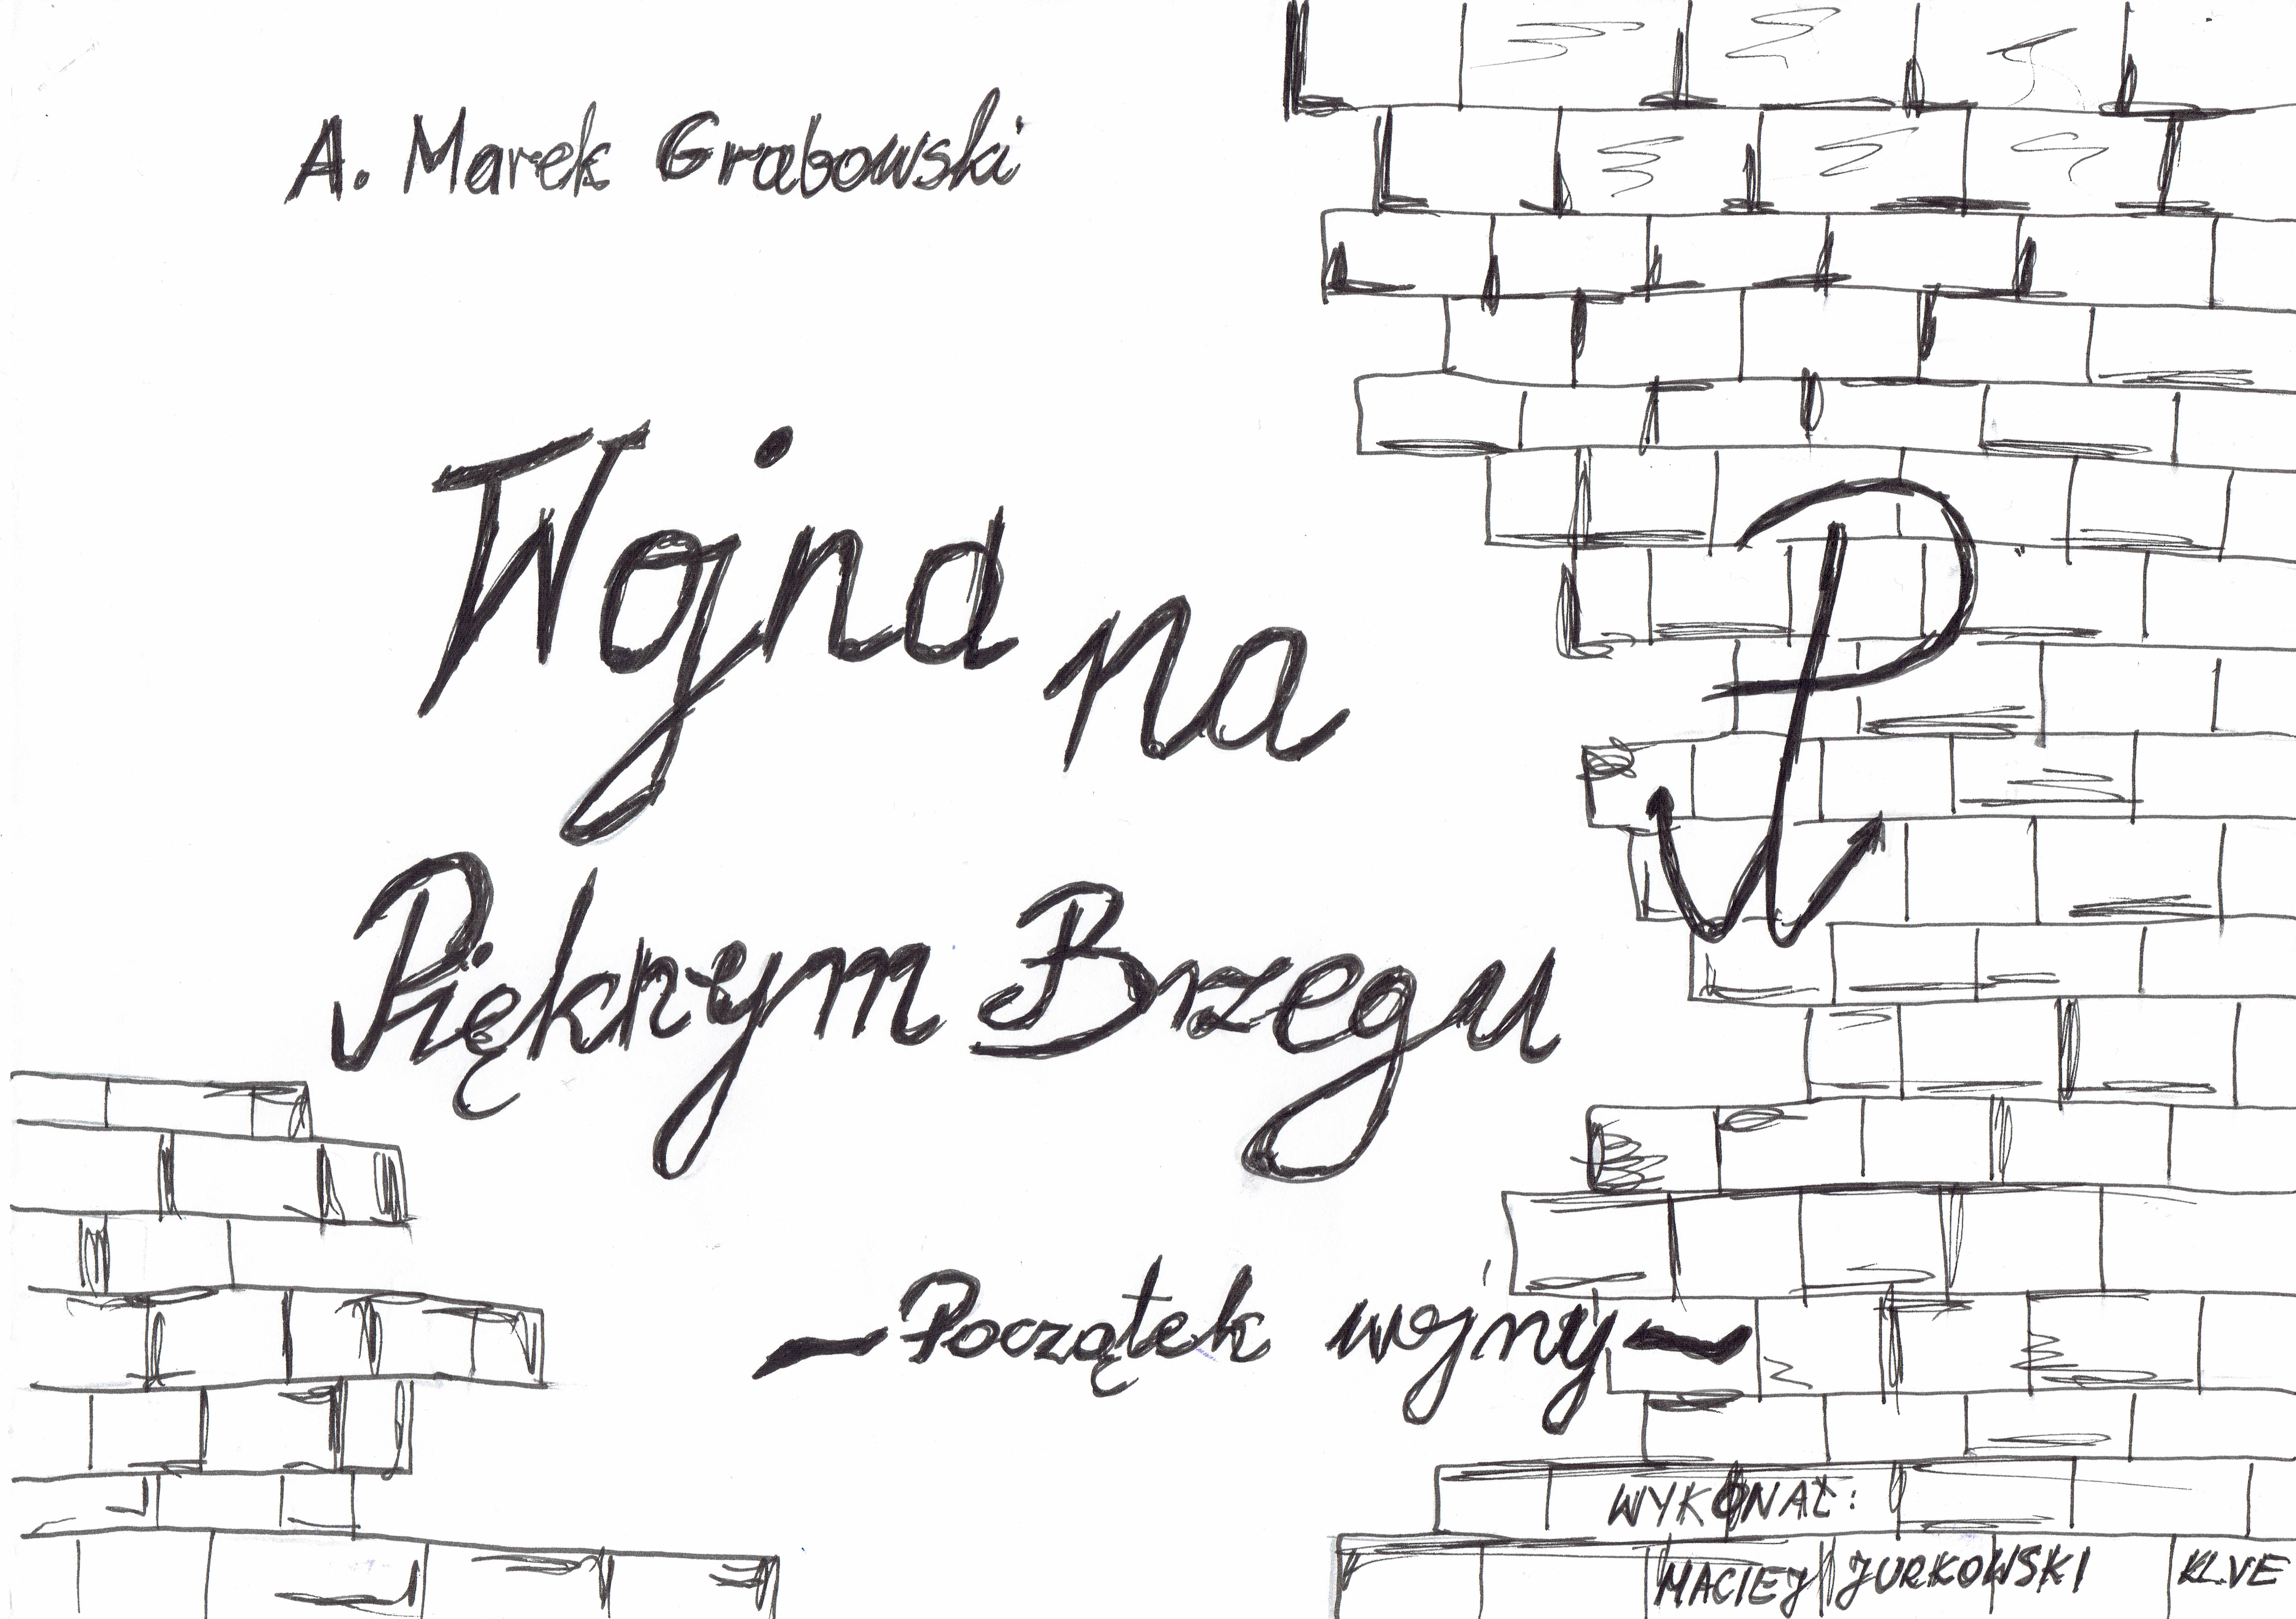 A. Marek Grabowski
Wojna na
Pięknym Brzegu
~Początek wojny~
PW
WYKONAŁ:
MACIEJ JURKOWSKI KL.VE